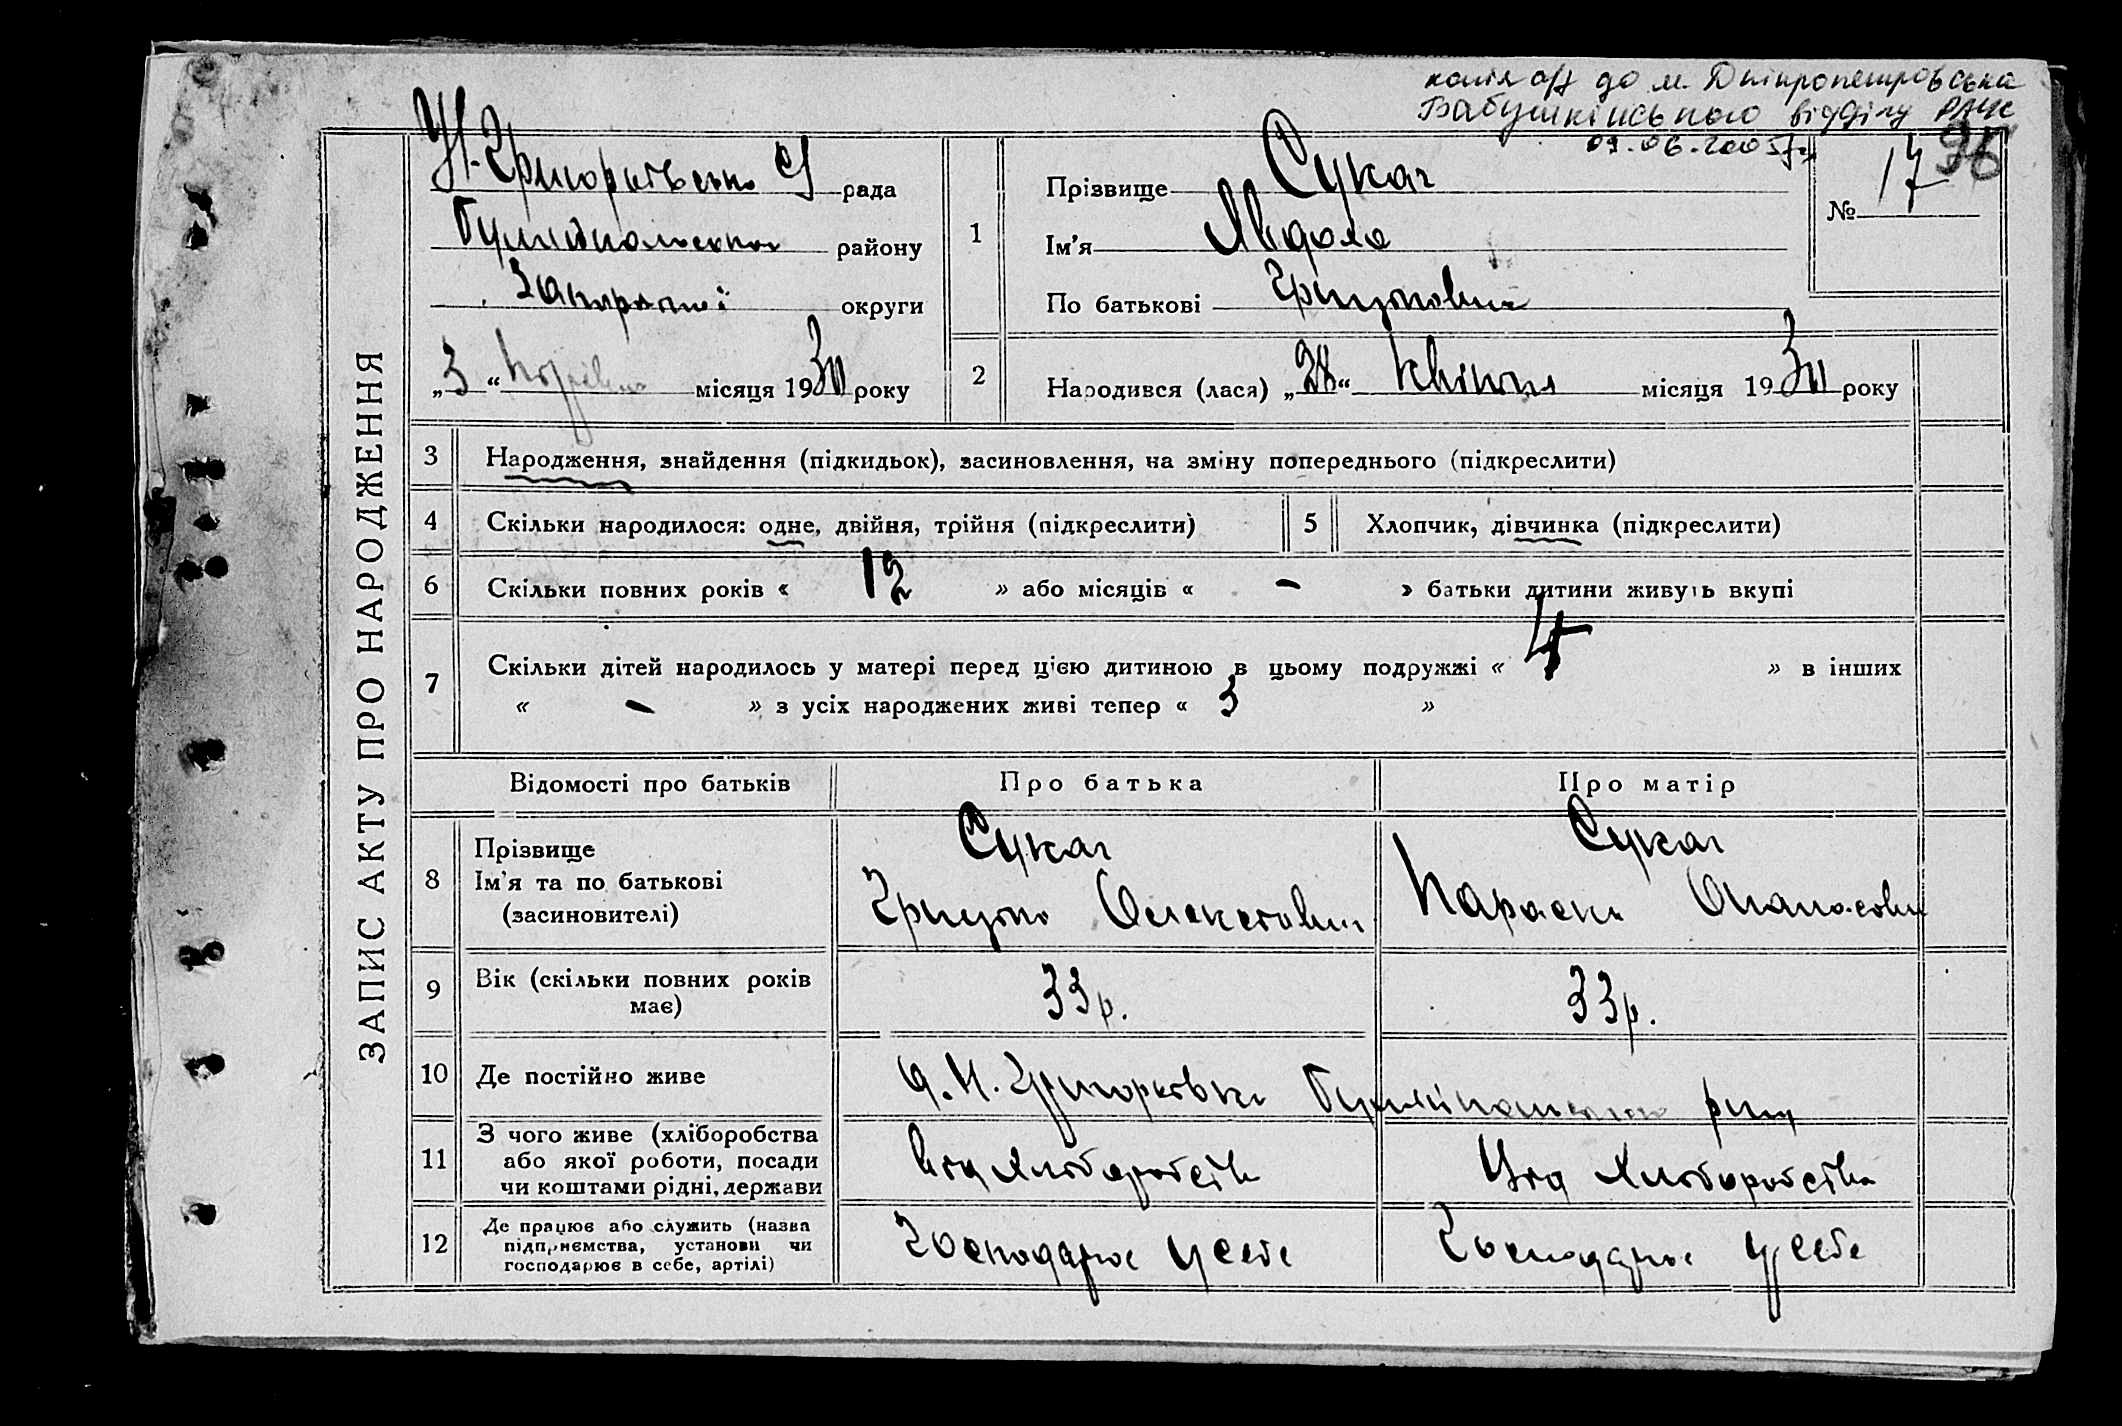 копія а/з до м. Дніпропетровська
Бабушкінського відділу РАЦС
09.06.2005р
Н-Григорівська с/ рада
району
округи
„3“ місяця 1930 року
1
Прізвище Сукач
Ім’я Явдоха
По батькові Грицьковна
№ 17 96
2
Народився (лася) „28“ квітня місяця 1930 року
ЗАПИС АКТУ ПРО НАРОДЖЕННЯ
3 Народження, знайдення (підкидьок), засиновлення, на зміну попереднього (підкреслити)
4 Скільки народилося: одне, двійня, трійня (підкреслити) 5 Хлопчик, дівчинка (підкреслити)
6 Скільки повних років « 12 » або місяців « – » батьки дитини живуть вкупі
7 Скільки дітей народилось у матері перед цією дитиною в цьому подружжі « 4 » в інших
« – » з усіх народжених живі тепер « 3 »
Відомості про батьків Про батька Про матір
8 Прізвище Ім’я та по батькові (засиновителі)
Сукач Сукач
Грицько Олексієвич Параска Опанасовн
9 Вік (скільки повних років має) 33 р. 33 р.
10 Де постійно живе с. Н. Григорівка району
11 З чого живе (хліборобства
або якої роботи, посади
чи коштами рідні, держави
від хліборобства від хліборобства
12 Де працює або служить (назва
підприємства, установи чи
господарює в себе, артілі)
Господарює у себе Господарює у себе